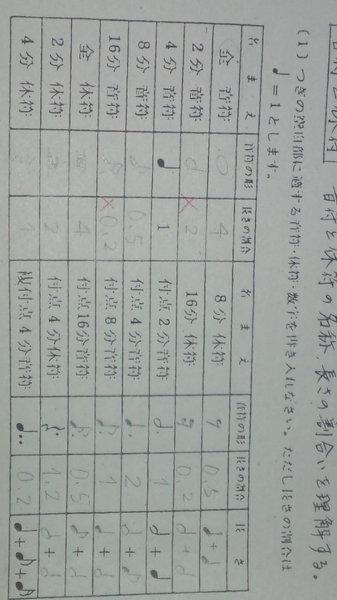 音符と休符の名称、長さの割合いを理解する。
(1) つぎの空白部に適する音符・休符・数字を書き入れなさい。ただし長さの割合は
♩=1とします。
名まえ 音符の形 長さの割合 名まえ 音符の形 長さの割合 長さ
全音符 4 8分休符 0.5
2分音符 2 16分休符 0.2
4分音符 ♩ 1 付点2分音符 1
8分音符 0.5 付点4分音符 2
16分音符 0.2 付点8分音符 1
全休符 4 付点16分音符 0.5
2分休符 2 付点4分休符 1.2
4分休符 1 複付点4分音符 ♩.. 0.2